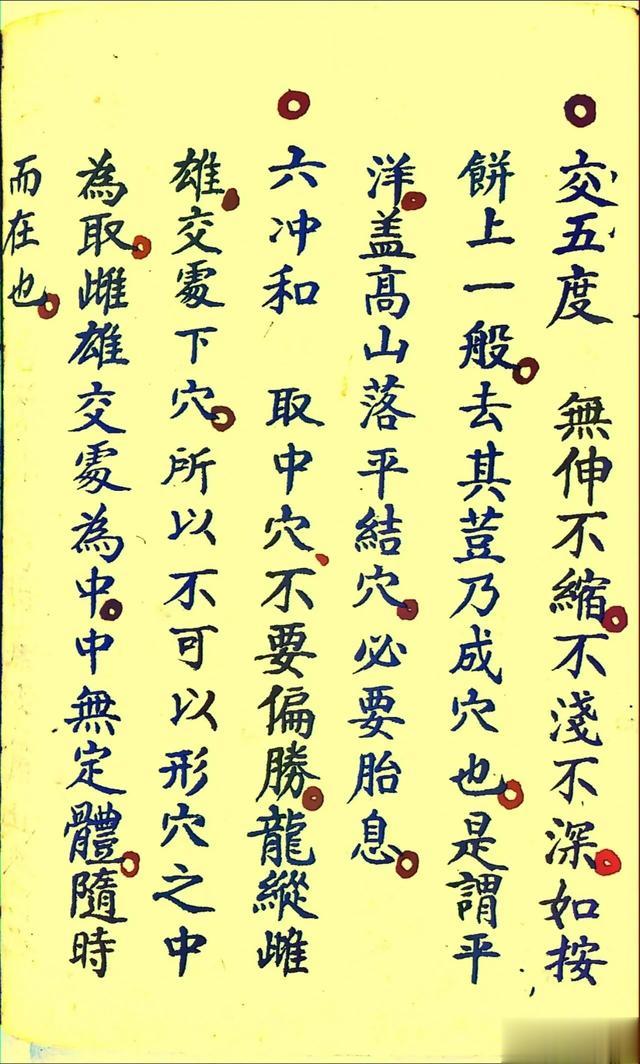 交五度　無伸不縮不淺不深如按
餅上一般去其荳乃成穴也是謂平
洋盖髙山落平結穴必要胎息
六冲和　取中穴不要偏勝龍縱雌
雄交處下穴所以不可以形穴之中
為取雌雄交處為中中無定體隨時
而在也